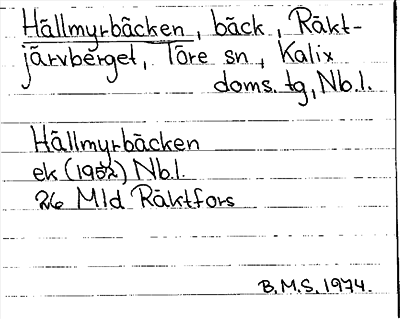 Hällmyrbäcken, bäck, Räkt-
järvberget, Töre sn, Kalix
doms. tg, Nb.l.
Hällmyrbäcken
ek (1952) Nb.l.
26 Mld Räktfors
B.M.S. 1974.